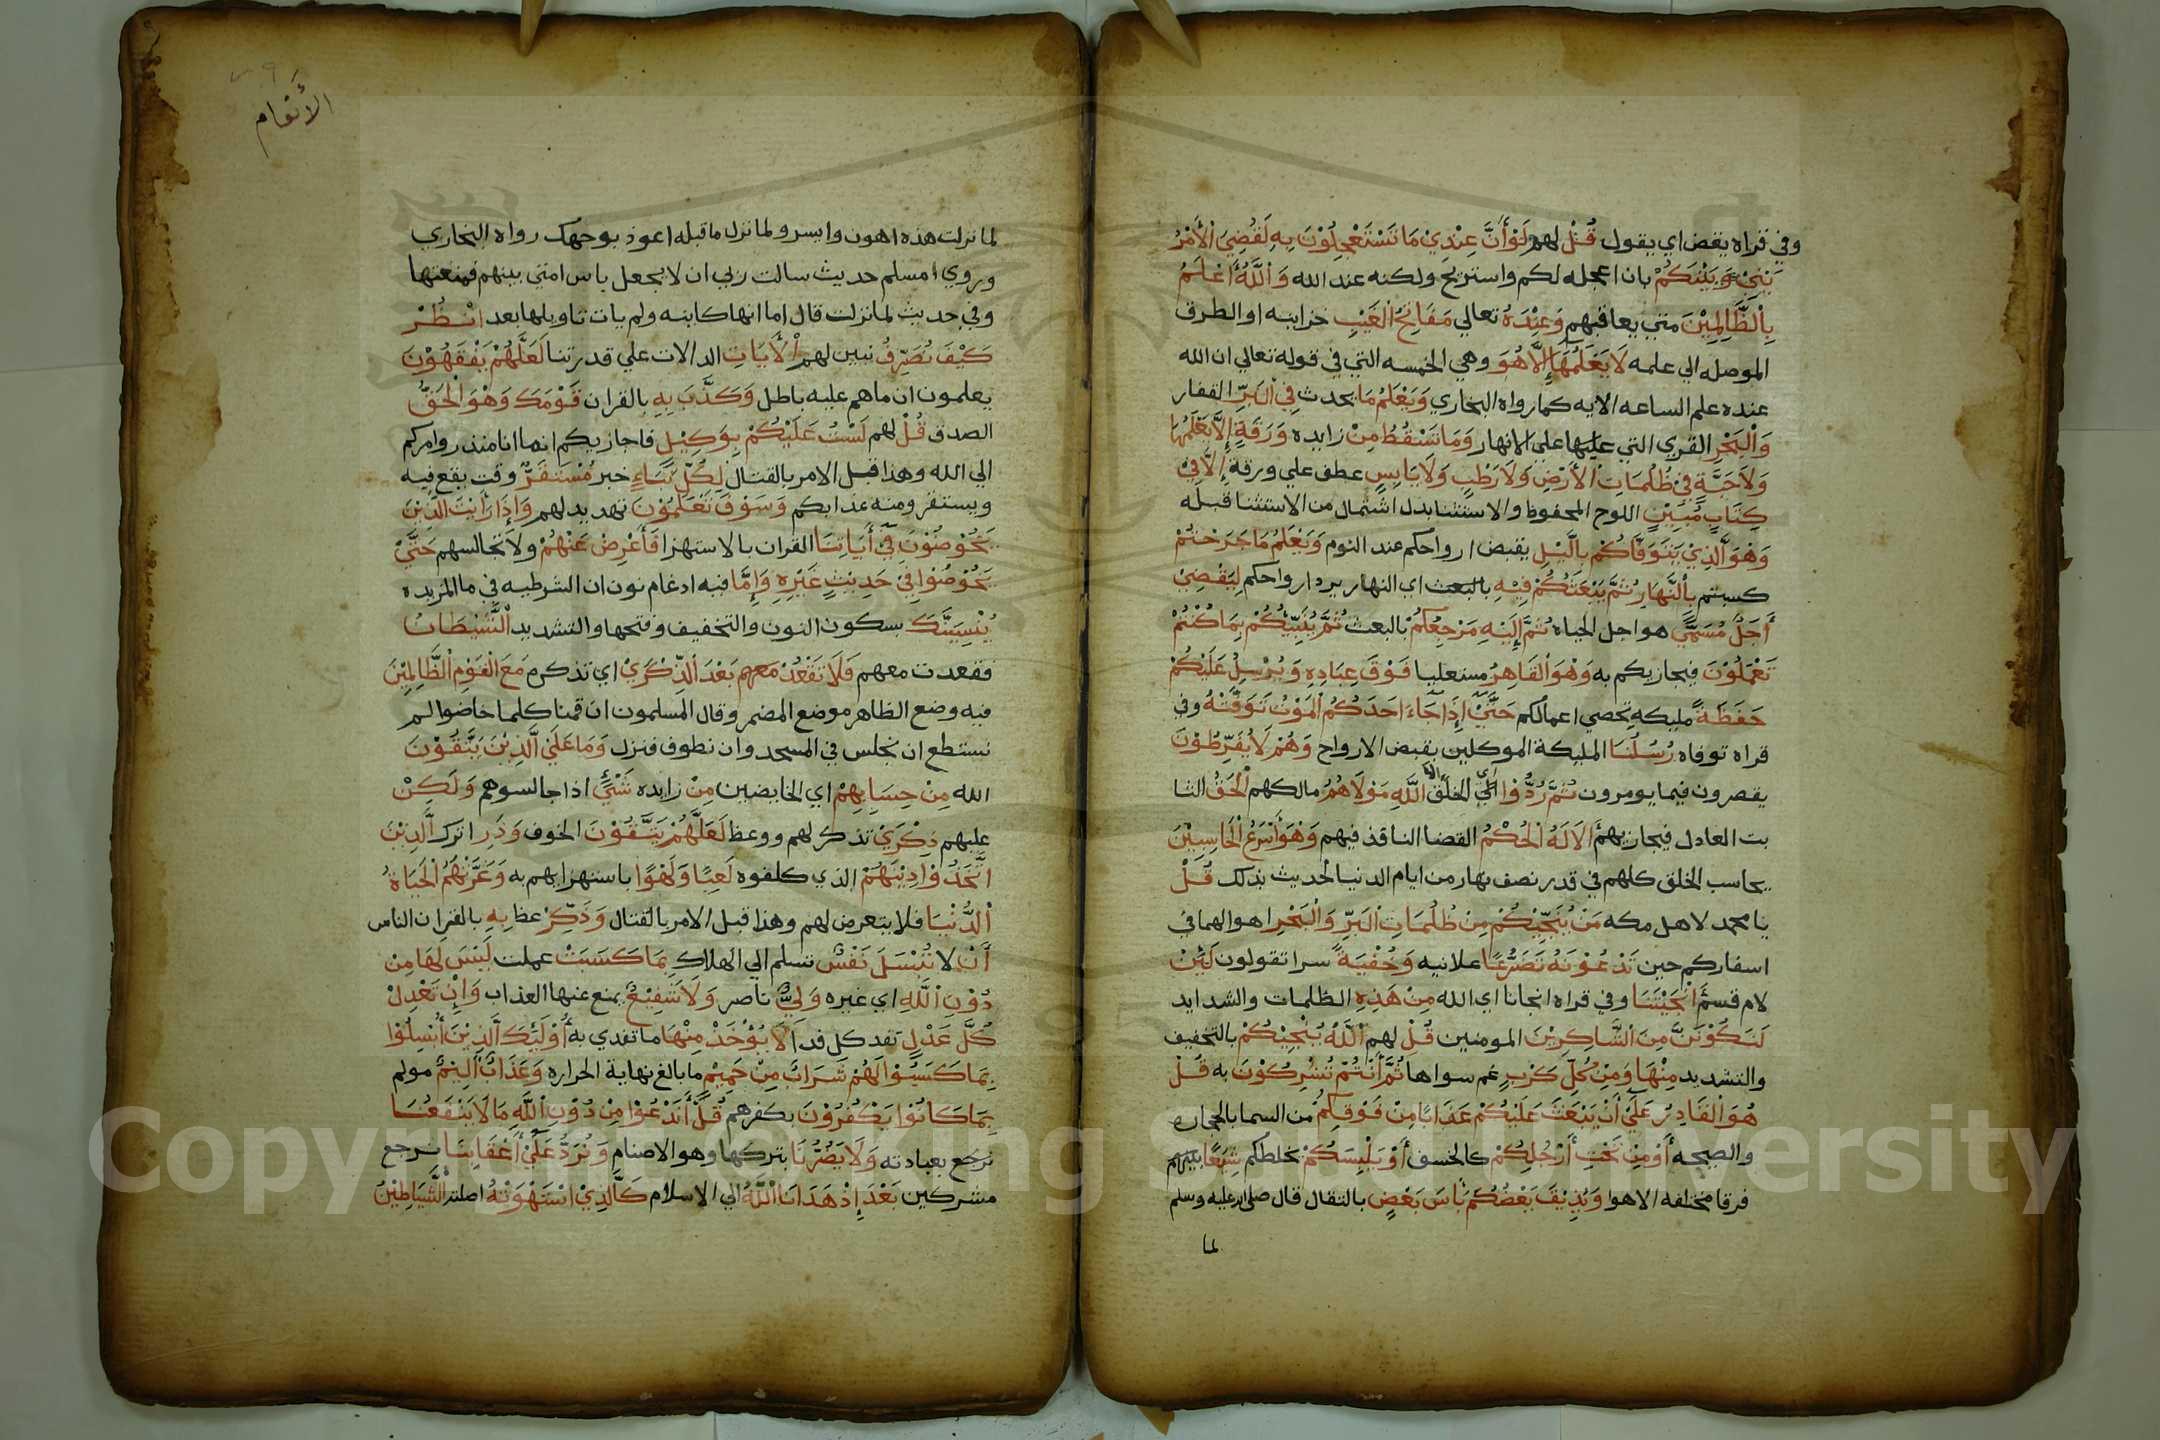 وفي قراه يقض اي يقول قُلْ لهم لَوْ أَنَّ عِنْدِيْ مَا تَسْتَعْجِلُوْنَ بِهِ لَقُضِيَ الْأَمْرُ
بَيْنِيْ وَبَيْنَكُمْ بان اعجله لكم واستريح ولكنه عند الله وَاللَّهُ أَعْلَمُ
بِالظَّالِمِيْنَ متي يعاقبهم وَعِنْدَهُ تعالي مَفَاتِحُ الْغَيْبِ خزاينه او الطرق
الموصله الي علمه لَا يَعْلَمُهَا إِلَّا هُوَ وهي الخمسه التي في قوله تعالي ان الله
عنده علم الساعه الايه كما رواه البخاري وَيَعْلَمُ مَا يحدث فِي الْبَرِّ القفار
وَالْبَحْرِ القري التي عليها على الانهار وَمَا تَسْقُطُ مِنْ زايده وَرَقَةٍ إِلَّا يَعْلَمُهَا
وَلَا حَبَّةٍ فِيْ ظُلُمَاتِ الْأَرْضِ وَلَا رَطْبٍ وَلَا يَابِسٍ عطف علي ورقة إِلَّا فِيْ
كِتَابٍ مُبِيْنٍ اللوح المحفوظ والاستثنا بدل اشتمال من الاستثنا قبله
وَهُوَ الَّذِيْ يَتَوَفَّاكُمْ بِالَّيْلِ يقبض ارواحكم عند النوم وَيَعْلَمُ مَا جَرَحْتُمْ
كسبتم بِالنَّهَارِ ثُمَّ يَبْعَثُكُمْ فِيْهِ بالبعث اي النهار يرد ارواحكم لِيُقْضِيْ
أَجَلٌ مُسَمًّي هو اجل الحياه ثُمَّ إِلَيْهِ مَرْجِعُكُمْ بالبعث ثُمَّ يُنَبِّئُكُمْ بِمَا كُنْتُمْ
تَعْمَلُوْنَ فيجازيكم به وَهُوَ الْقَاهِرُ مستعليا فَوْقَ عِبَادِهِ وَيُرْسِلُ عَلَيْكُمْ
حَفَظَةً مليكه تحصي اعمالكم حَتَّيْ إِذَا جَاءَ احَدَكُمُ الْمَوْتُ تَوَفَّتْهُ وفي
قراه توفاه رُسُلُنَا المليكة الموكلين بقبض الارواح وَهُمْ لَا يُفَرِّطُوْنَ
يقصرون فيما يومرون ثُمَّ رُدُّوْا اي الخلق الي اللَّهِ مَوْلَاهُمُ مالكهم الْحَقُّ الثا
بت العادل فيجازيهم أَلَا لَهُ الْحُكْمُ القضا النافذ فيهم وَهُوَ أَسْرَعُ الْحَاسِبِيْنَ
يحاسب الخلق كلهم في قدر نصف نهار من ايام الدنيا لحديث بذلك قُلْ
يا محمد لاهل مكه مَنْ يُنَجِّيْكُمْ مِنْ ظُلُمَاتِ الْبَرِّ وَالْبَحْرِ اهوالهما في
اسفاركم حين تَدْعُوْنَهُ تَضَرُّعًا علانيه وَخُفْيَةً سرا تقولون لَئِنْ
لام قسم أَنْجَيْتَنَا وفي قراه انجانا اي الله مِنْ هَذِهِ الظلمات والشدايد
لَنَكُوْنَنَّ مِنَ الشَّاكِرِيْنَ المومنين قُلْ لهم اللَّهُ يُنْجِيْكُمْ بالتخفيف
والتشديد مِنْهَا وَمِنْ كُلِّ كَرْبٍ غم سواها ثُمَّ أَنْتُمْ تُشْرِكُوْنَ به قُلْ
هُوَ الْقَادِرُ عَلَيْ أَنْ يَبْعَثَ عَلَيْكُمْ عَذَابًا مِنْ فَوْقِكُمْ من السما بالحجاره
والصيحه أَوْ مِنْ تَحْتِ أَرْجُلِكُمْ كالخسف أَوْ يَلْبِسَكُمْ يخلطكم شِيَعًا
فرقا مختلفه الاهوا وَيُذِيْقَ بَعْضَكُمْ بَأْسَ بَعْضٍ بالتقال قال صلى الله عليه وسلم
لما
الأنعام
لما نزلت هذه اهون وايسر ولما نزل ما قبله اعوذ بوجهك رواه البخاري
وروي امسلم حديث سالت ربي ان لا يجعل باس امتي بينهم فمنعنيها
وفي حديث لما نزلت قال اما انها كاينه ولم يات تاويلها بعد انْظُرْ
كَيْفَ نُصَرِّفُ نبين لهم الْأَيَاتِ الدالات علي قدرتنا لَعَلَّهُمْ يَفْقَهُوْنَ
يعلمون ان ما هم عليه باطل وَكَذَّبَ بِهِ بالقران قَوْمُكَ وَهُوَ الْحَقُّ
الصدق قُلْ لهم لَسْتُ عَلَيْكُمْ بِوَكِيْلٍ فاجازيكم انما انا منذر وامركم
الي الله وهذا قبل الامر بالقتال لِكُلِّ نَبَاءٍ خبر مُسْتَقَرٌّ وقت يقع فيه
ويستقر ومنه عذابكم وَسَوْفَ تَعْلَمُوْنَ تهديد لهم وَإِذَا رَأَيْتَ الَّذِيْنَ
يَخُوْضُوْنَ فِيْ أَيَاتِنَا القران بالاستهزا فَأَعْرِضْ عَنْهُمْ ولا تجالسهم حَتَّيْ
يَخُوْضُوْا فِيْ حَدِيْثٍ غَيْرِهِ وَإِمَّا فيه ادغام نون ان الشرطيه في ما المزيده
يُنْسِيَنَّكَ بسكون النون والتخفيف وفتحها والتشديد الشَّيْطَانُ
فقعدت معهم فَلَا تَقْعُدْ معهم بَعْدَ الذِّكْرَيْ اي تذكره مَعَ الْقَوْمِ الظَّالِمِيْنَ
فيه وضع الظاهر موضع المضمر وقال المسلمون ان قمنا كلما خاضوا لم
نستطع ان نجلس في المسجد وان نطوف فنزل وَمَا عَلَي الَّذِيْنَ يَتَّقُوْنَ
الله مِنْ حِسَابِهِمْ اي الخايضين مِنْ زايده شَيْئٍ اذا جالسوهم وَلَكِنْ
عليهم ذِكْرَيْ تذكر لهم ووعظ لَعَلَّهُمْ يَتَّقُوْنَ الخوف وَذَرِ اترك الَّذِيْنَ
اتَّخَذُوْا دِيْنَهُمْ الذي كلفوه لَعِبًا وَلَهْوًا باستهزايهم به وَغَرَّتْهُمُ الْحَيَاةُ
الدُّنْيَا فلا يتعرض لهم وهذا قبل الامر بالقتال وَذَكِّرْ عظ بِهِ بالقران الناس
أَنْ لا تُبْسَلَ نَفْسٌ تسلم الي الهلاك بِمَا كَسَبَتْ عملت لَيْسَ لَهَا مِنْ
دُوْنِ اللَّهِ اي غيره وَلِيٌّ ناصر وَلَا شَفِيْعٌ يمنع عنها العذاب وَإِنْ تَعْدِلْ
كُلَّ عَدْلٍ تفد كل فدا لَا يُؤْخَذْ مِنْهَا ما تفدي به أُوْلَئِكَ الَّذِيْنَ أُبْسِلُوْا
بِمَا كَسَبُوْا لَهُمْ شَرَابٌ مِنْ حَمِيْمٍ ما بالغ نهاية الحراره وَعَذَابٌ أَلِيْمٌ مولم
بِمَا كَانُوْا يَكْفُرُوْنَ بكفرهم قُلْ أَنَدْعُوْا مِنْ دُوْنِ اللَّهِ مَا لَا يَنْفَعُنَا
نرجع بعبادته وَلَا يَضُرُّنَا بتركها وهو الاصنام وَنُرَدُّ عَلَيْ أَعْقَابِنَا نرجع
مشركين بَعْدَ إِذْ هَدَانَا اللَّهُ الي الاسلام كَالَّذِيْ اسْتَهْوَتْهُ اضلته الشَّيَاطِيْنُ
Copyright © King Saud University